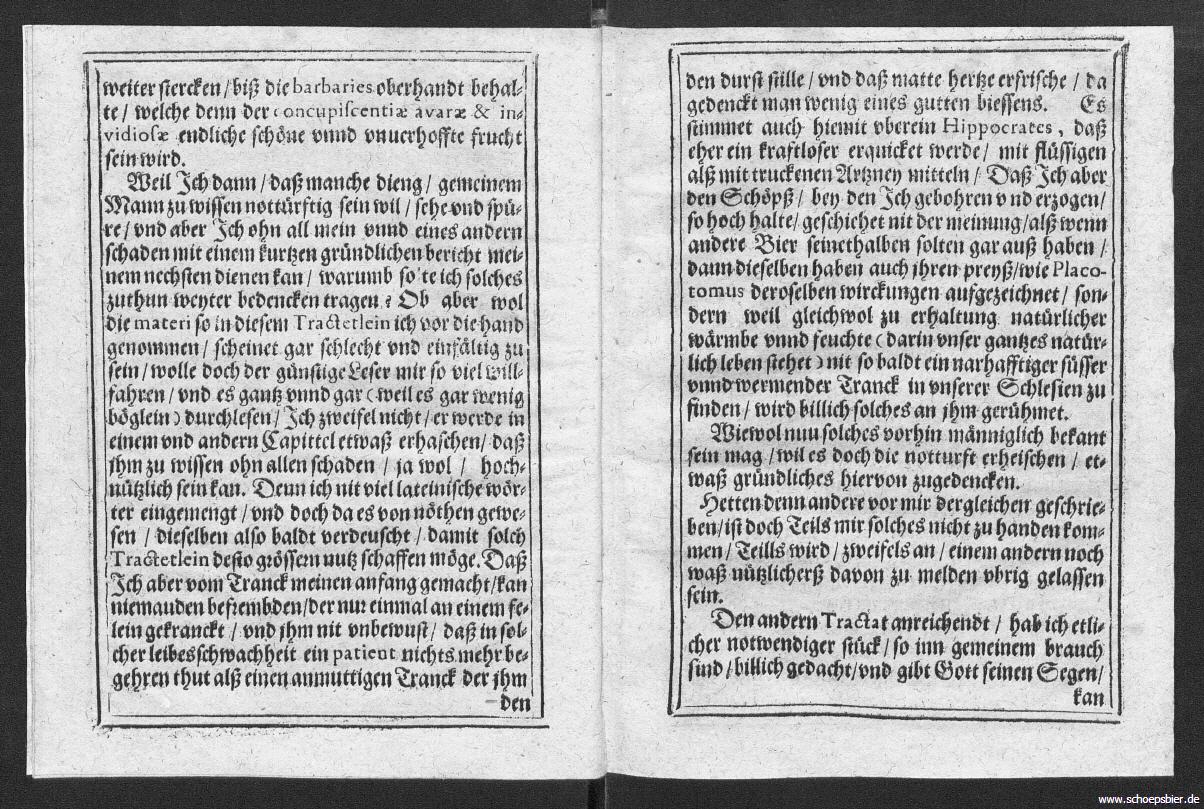 weiter stercken / biß die barbaries oberhandt behal-
te / welche denn der concupiscentiæ avaræ & in-
vidiosæ endliche schöne vnnd vnuerhoffte frucht
sein wird.
Weil Ich dann / daß manche dieng / gemeinem
Mann zu wissen nottürftig sein wil / sehe vnd spü-
re / vnd aber Ich ohn all mein vnnd eines andern
schaden mit einem kurtzen gründlichen bericht mei-
nem nechsten dienen kan / warumb so te ich solches
zuthun weyter bedencken tragen ? Ob aber wol
die materi so in diesem Tractetlein ich vor die hand
genommen / scheinet gar schlecht vnd einfältig zu
sein / wolle doch der günstige Leser mir so viel will-
fahren / vnd es gantz vnnd gar ( weil es gar wenig
böglein ) durchlesen / Ich zweifel nicht / er werde in
einem vnd andern Capittel etwaß erhaschen / daß
jhm zu wissen ohn allen schaden / ja wol / hoch-
nützlich sein kan. Denn ich nit viel lateinische wör-
ter eingemengt / vnd doch da es von nöthen gewe-
sen / dieselben also baldt verdeuscht / damit solch
Tractetlein desto grössern nutz schaffen möge. Daß
Ich aber vom Tranck meinen anfang gemacht / kan
niemanden befrembden / der nur einmal an einem fe-
lein gekranckt / vnd jhm nit vnbewust / daß in sol-
cher leibesschwachheit ein patient nichts mehr be-
gehren thut alß einen anmuttigen Tranck der jhm
den
den durst stille / vnd daß matte hertze erfrische / da
gedenckt man wenig eines gutten biessens. Es
stimmet auch hiemit vberein Hippocrates, daß
eher ein kraftloser erquicket werde / mit flüssigen
alß mit truckenen Artzney mitteln / Daß Ich aber
den Schöpß / bey den Ich gebohren vnd erzogen /
so hoch halte / geschichet nit der meinung / alß wenn
andere Bier seinethalben solten gar auß haben /
dann dieselben haben auch jhren preyß / wie Placo-
tomus deroselben wirckungen aufgezeichnet / son-
dern weil gleichwol zu erhaltung natürlicher
wärmbe vnnd feuchte ( darin vnser gantzes natür-
lich leben stehet ) nit so baldt ein narhafftiger süsser
vnnd wermender Tranck in vnserer Schlesien zu
finden / wird billich solches an jhm gerühmet.
Wiewol nuu solches vorhin männiglich bekant
sein mag / wil es doch die notturft erheischen / et-
waß gründliches hiervon zugedencken.
Hetten denn andere vor mir dergleichen geschrie-
ben / ist doch Teils mir solches nicht zu handen kom-
men / Teills wird / zweifels an / einem andern noch
waß nützlicherß davon zu melden vbrig gelassen
sein.
Den andern Tractat anreichendt / hab ich etli-
cher notwendiger stück / so inn gemeinem brauch
sind / billich gedacht / vnd gibt Gott seinen Segen /
kan
www.schoepsbier.de